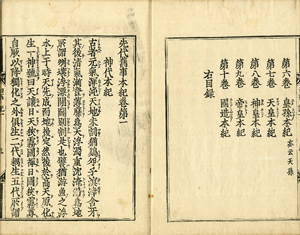 第六卷 皇孫本紀 亦云天孫
第七卷 天皇本紀
第八卷 神皇本紀
第九卷 帝皇本紀
第十卷 國造本紀
右目録
先代舊事本紀卷第一
神代本紀
古者元氣渾沌天地未割猶鷄卵子溟涬含牙
其後清氣漸登薄靡爲天浮濁重沈淹滯爲地
所謂州壤浮漂開闢別割是也譬猶游魚之浮
水上于時天先成而地後定然後於高天原化
生一神號曰天讓日天狹霧國禪日國狹霧尊
自厥以降獨化之外俱生二代耦生五代所謂